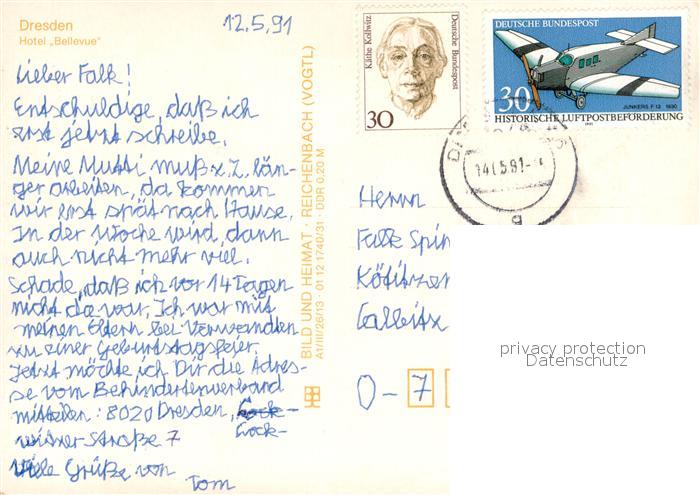 Dresden
Hotel „Bellevue"
12.5.91
Lieber Falk!
Entschuldige, daß ich
erst jetzt schreibe.
Meine Mutti muß z.Z. län-
ger arbeiten, da kommen
wir erst spät nach Hause.
In der Woche wird dann
auch nicht mehr viel.
Schade, daß ich vor 14 Tagen
nicht da war. Ich war mit
meinen Eltern bei Verwandten
zu einer Geburtstagsfeier.
Jetzt möchte ich Dir die Adres-
se vom Behindertenverband
mitteilen: 8020 Dresden,
Cock-
witzer Straße 7
Viele Grüße von
Tom
BILD UND HEIMAT · REICHENBACH (VOGTL)
A1/III/26/13 · 01 12 1740/31 · DDR 0,20 M
Käthe Kollwitz
Deutsche Bundespost
30
DEUTSCHE BUNDESPOST
30
JUNKERS F 13 1930
HISTORISCHE LUFTPOSTBEFÖRDERUNG
1991
14.5.91
g
Herrn
Falk
O - 7
privacy protection
Datenschutz